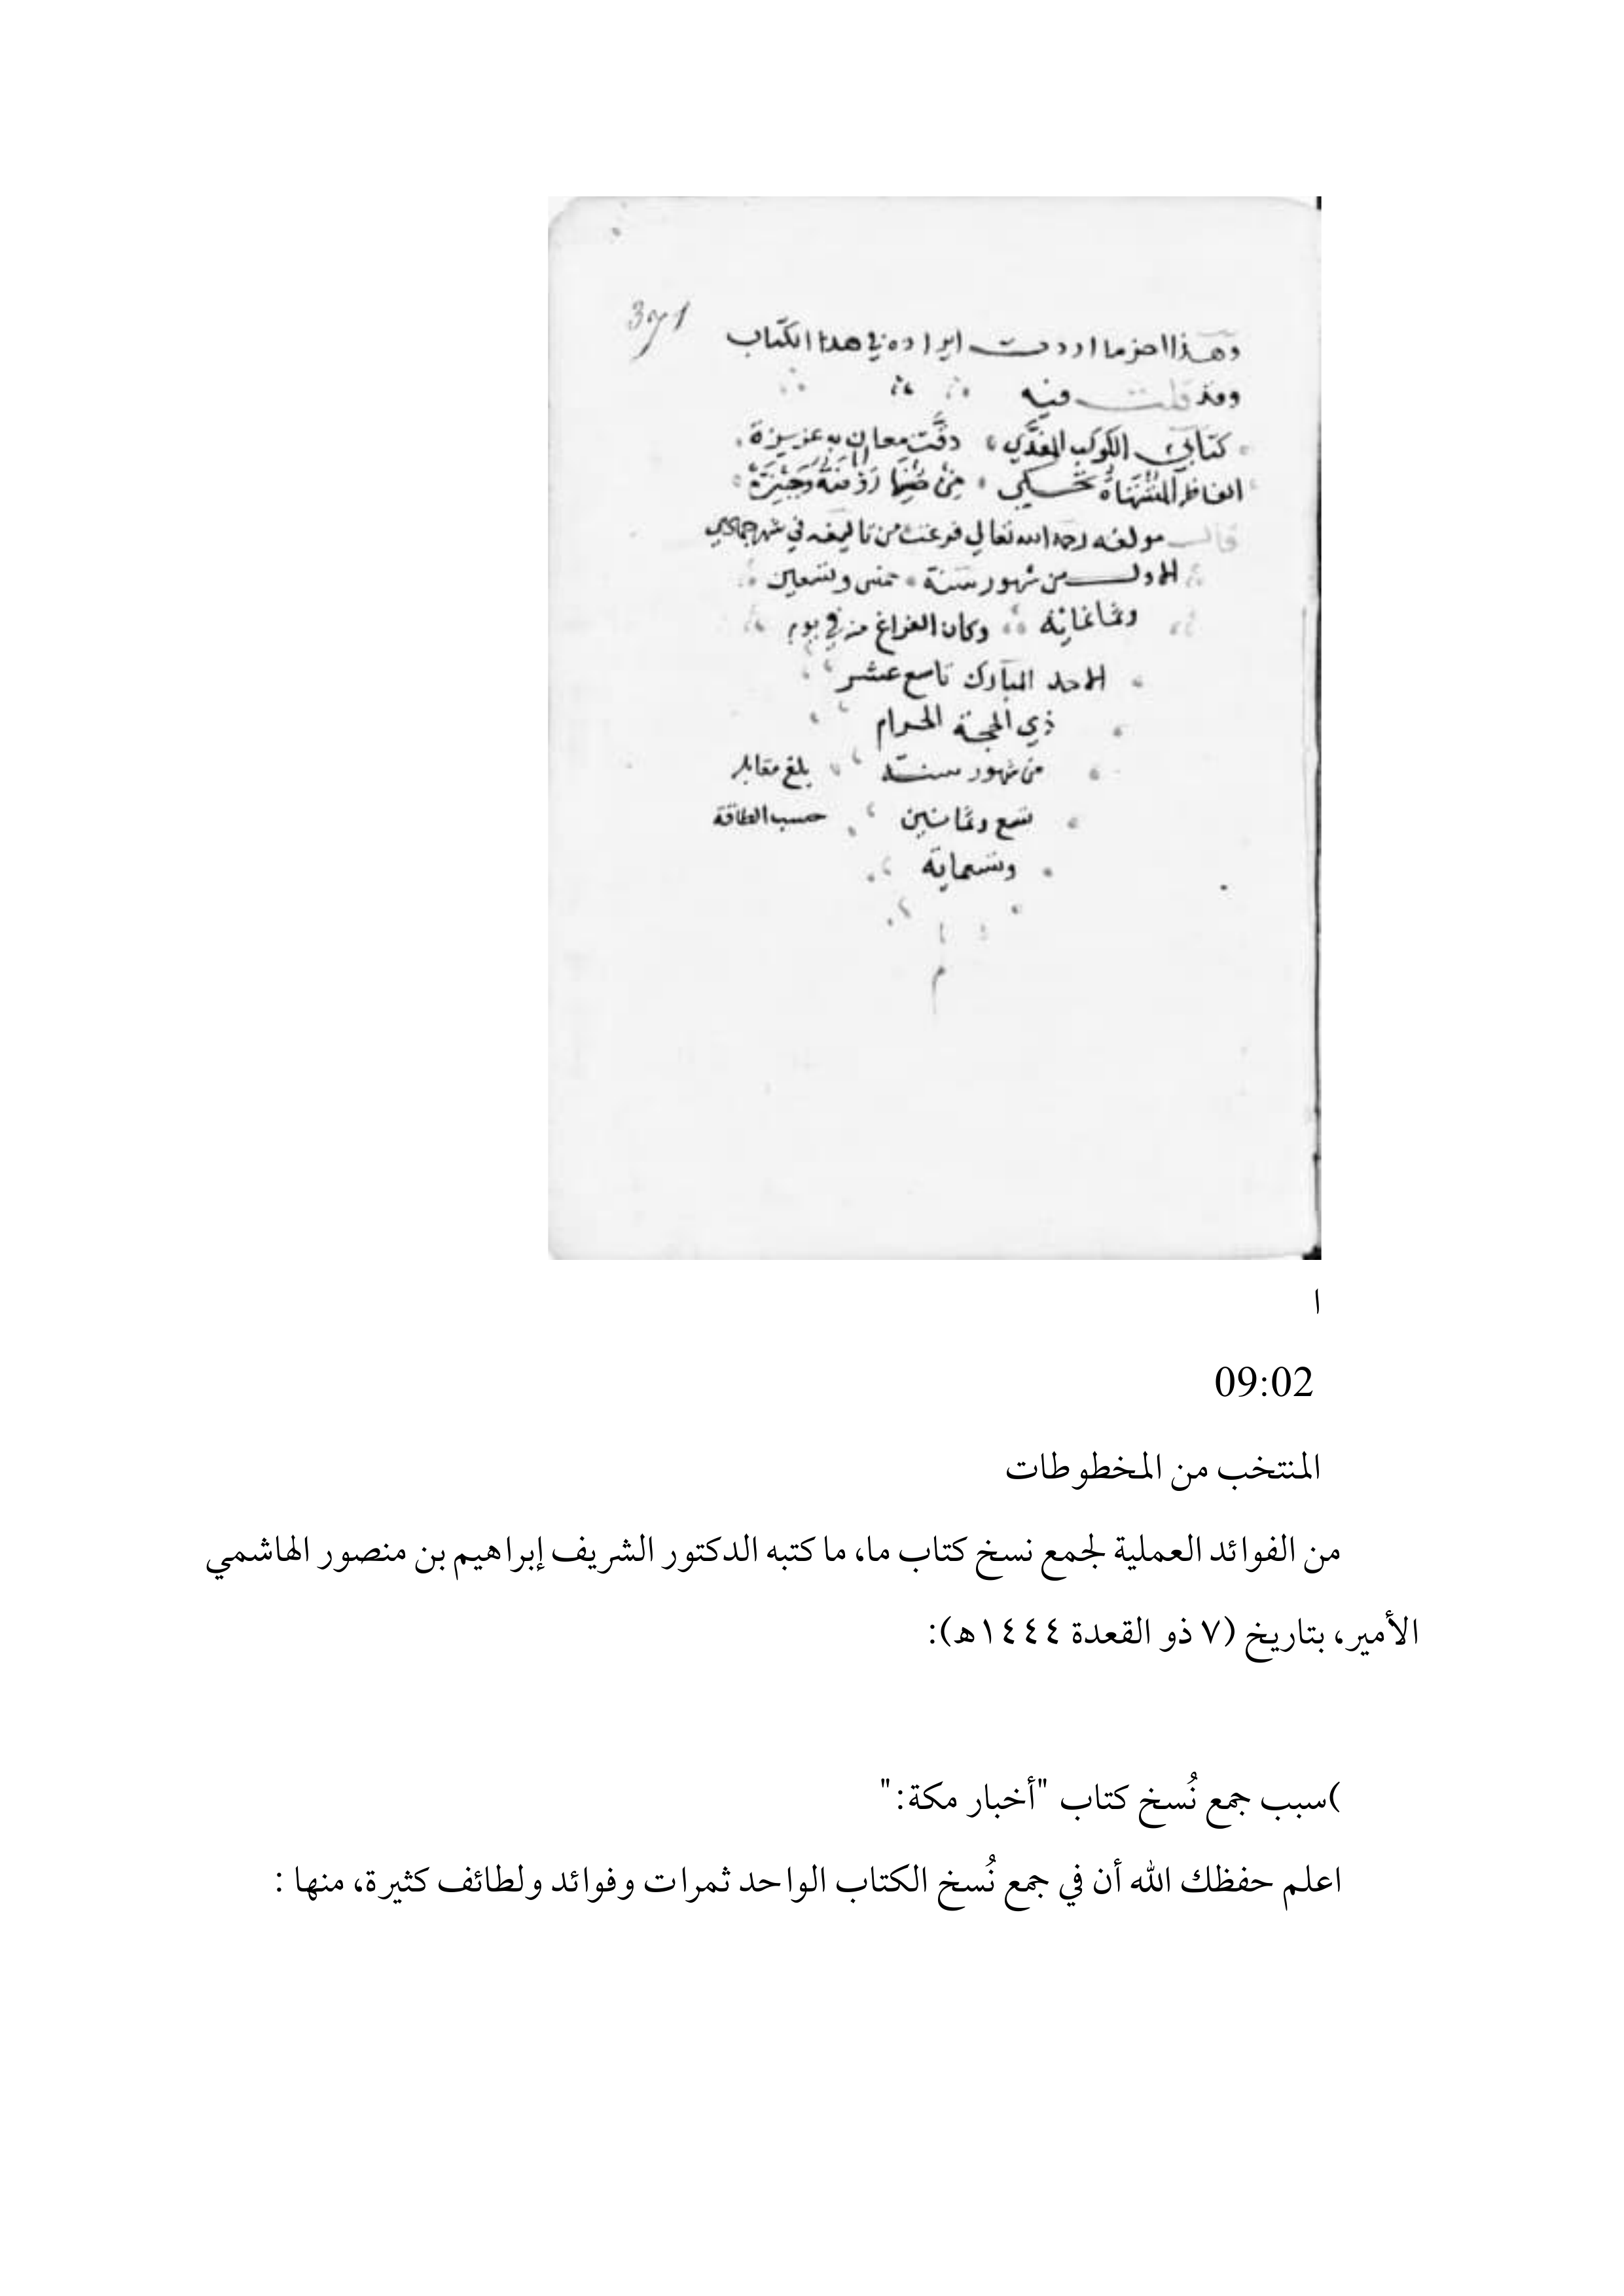 371
وهذا اخر ما اردت ايراده في هذا الكتاب
وقد قلت فيه
كتابي الكوكب المغدي دقت معان به عزيزة
الفاظ المشتهاة تحكي من
قال مولفه رحمه الله تعالي فرغت من تاليفه في شهر جمادي
الاول من شهور سنة خمس وتسعين
وثمانمائة وكان الفراغ من في يوم
الاحد المبارك تاسع عشر
ذي الحجة الحرام
من شهور سنة بلغ مقابله
تسع وثمانين حسب الطاقة
وتسعماية
م
ا
09:02
المنتخب من المخطوطات
من الفوائد العملية لجمع نسخ كتاب ما، ما كتبه الدكتور الشريف إبراهيم بن منصور الهاشمي
الأمير، بتاريخ (٧ ذو القعدة ١٤٤٤هـ):
)سبب جمع نُسخ كتاب "أخبار مكة:"
اعلم حفظك الله أن في جمع نُسخ الكتاب الواحد ثمرات وفوائد ولطائف كثيرة، منها :